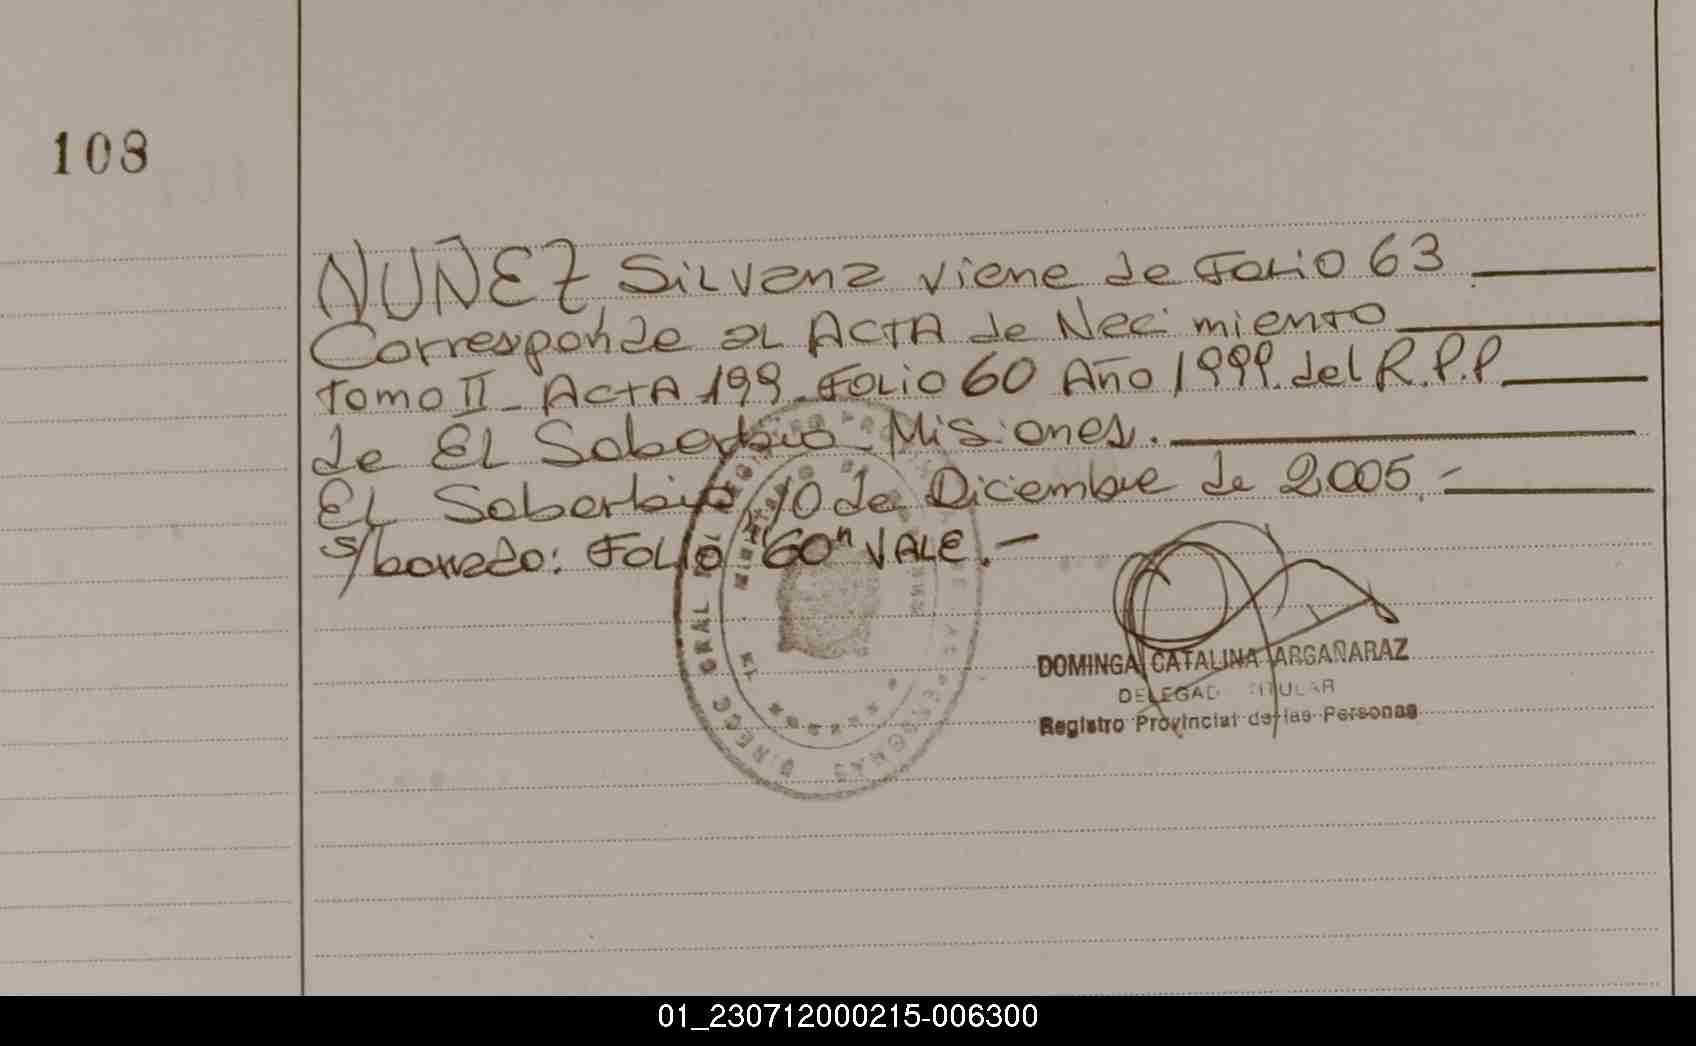 108
NUÑEZ Silvana viene de Folio 63
Corresponde al ACTA de Nacimiento
Tomo II - ACTA 199 - Folio 60 Año 1999. del R.P.P
de El Soberbio - Misiones.
El Soberbio, 10 de Diciembre de 2005.-
s/borrado: FOLIO "60" VALE.-
DIRECC GRAL
DOMINGA CATALINA ARGAÑARAZ
DELEGAD TITULAR
Registro Provincial de las Personas
01_230712000215-006300